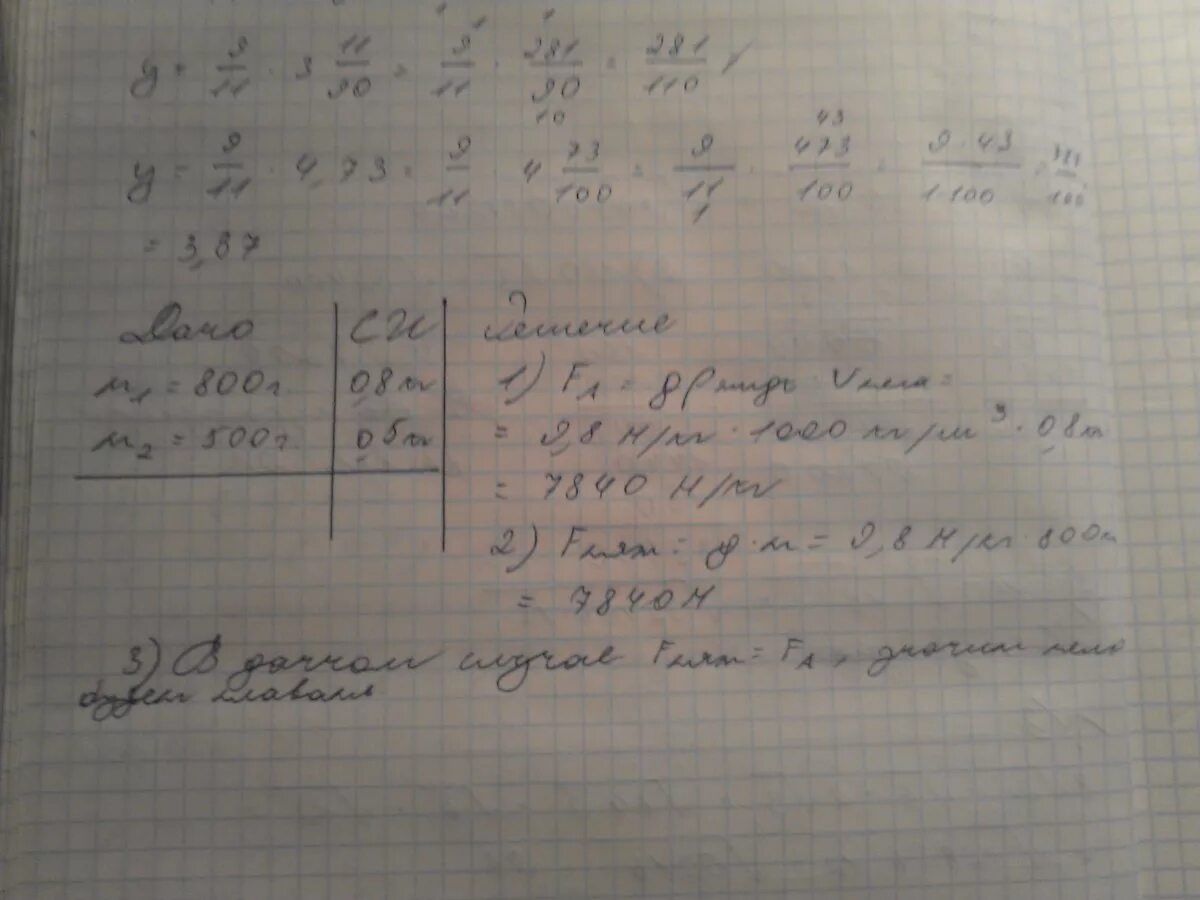 y = 9/11 · 3 11/90 = 9/11 · 281/90 = 281/110
10
43
y = 9/11 · 4,73 = 9/11 · 4 73/100 = 9/11 · 473/100 = 9·43/1·100 = 387/100
1
= 3,87
Дано СИ Решение
m₁ = 800г 0,8кг 1) Fₐ = gρжидк Vтела =
m₂ = 500г 0,5кг = 9,8 Н/кг · 1000 кг/м³ · 0,8кг
= 7840 Н/кг
2) Fтяж = g·m = 9,8 Н/кг · 800г
= 7840Н
3) В данном случае Fтяж = Fₐ, значит тело
будет плавать